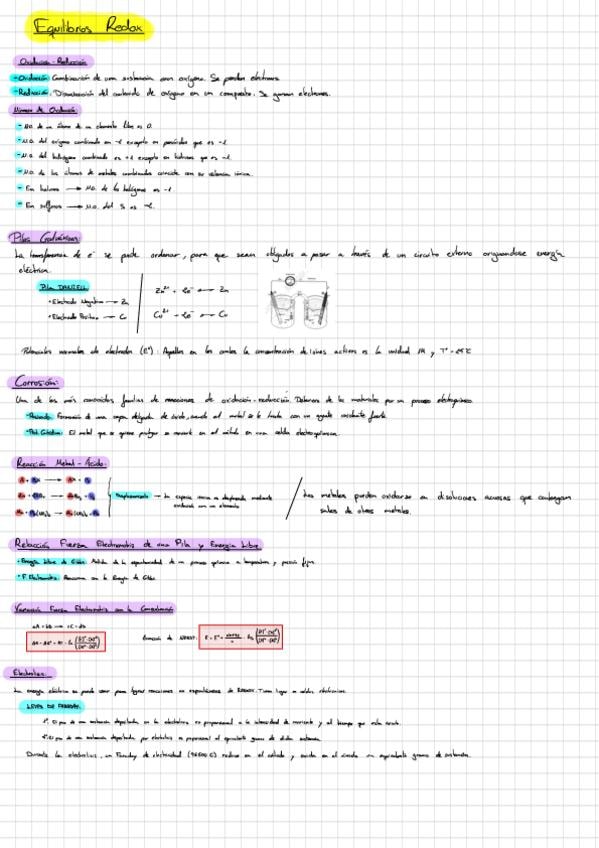 Equilibrios Redox
Oxidación - Reducción
- Oxidación: Combinación de una sustancia con oxígeno. Se pierden electrones.
- Reducción: Disminución del contenido de oxígeno en un compuesto. Se ganan electrones.
Número de Oxidación:
- N.O. de un átomo de un elemento libre es 0.
- N.O. del oxígeno combinado es excepto en peróxidos que es -1
- N.O. del hidrógeno combinado es +1 excepto en hidruros que es -1.
- N.O. de los átomos de metales combinados coincide con su valencia iónica.
- En haluros → N.O. de los halógenos es -1.
- En sulfuros → N.O. del S es
Pilas Galvánicas:
La transferencia de e⁻ se puede ordenar, para que sean obligados a pasar a través de un circuito externo originandose energía
eléctrica.
Pila DANIELL
• Electrodo Negativo → Zn
• Electrodo Positivo → Cu
Zn²⁺ + 2e⁻ → Zn
Cu²⁺ + 2e⁻ → Cu
Potenciales normales de electrodo (E°): Aquellos en los cuales la concentración de iones activos es la unidad 1M y Tª = 25°C
Corrosión:
Una de las más conocidas familias de reacciones de oxidación-reducción. Deterioro de los materiales por un proceso electroquímico.
Formación de una capa delgada de óxido, cuando el metal se le trata con un agente oxidante fuerte.
El metal que se quiere proteger se convierte en el cátodo en una celda electroquímica.
Reacción Metal - Ácido:
Desplazamiento → La especie iónica es desplazada mediante
oxidación con un elemento
Los metales pueden oxidarse en disoluciones acuosas que contengan
sales de otros metales.
Relación Fuerza Electromotriz de una Pila y Energía Libre
• Energía Libre de Gibbs: Medida de la espontaneidad de un proceso químico a temperatura y presión fijas.
• F. Electromotriz: Relaciona con la Energía de Gibbs.
Variación Fuerza Electromotriz con la Concentración
Ecuación de NERNST:
Electrólisis:
La energía eléctrica se puede usar para lograr reacciones no espontáneas de REDOX. Tienen lugar en celdas electrolíticas.
LEYES DE FARADAY:
1º. El peso de una sustancia depositada en la electrólisis es proporcional a la intensidad de corriente y al tiempo que
2º. El peso de una sustancia depositada por electrólisis es proporcional al equivalente gramo de dicha sustancia.
Durante la electrólisis, un Faraday de electricidad (96500 C) reduce en el cátodo y oxida en el ánodo un equivalente gramo de sustancia.